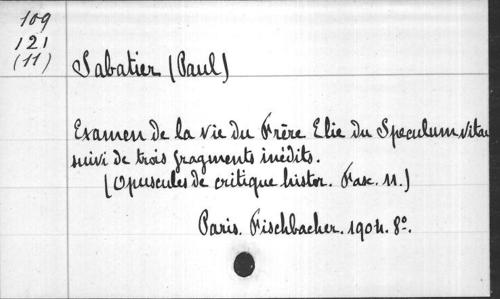 109
121
(11)
Sabatier (Paul)
Examen de la vie du Frère Elie du Speculum Vitae
suivi de trois fragments inédits.
(Opuscules de critique histor. Fasc. 11.)
Paris. Fischbacher. 1904. 8º.